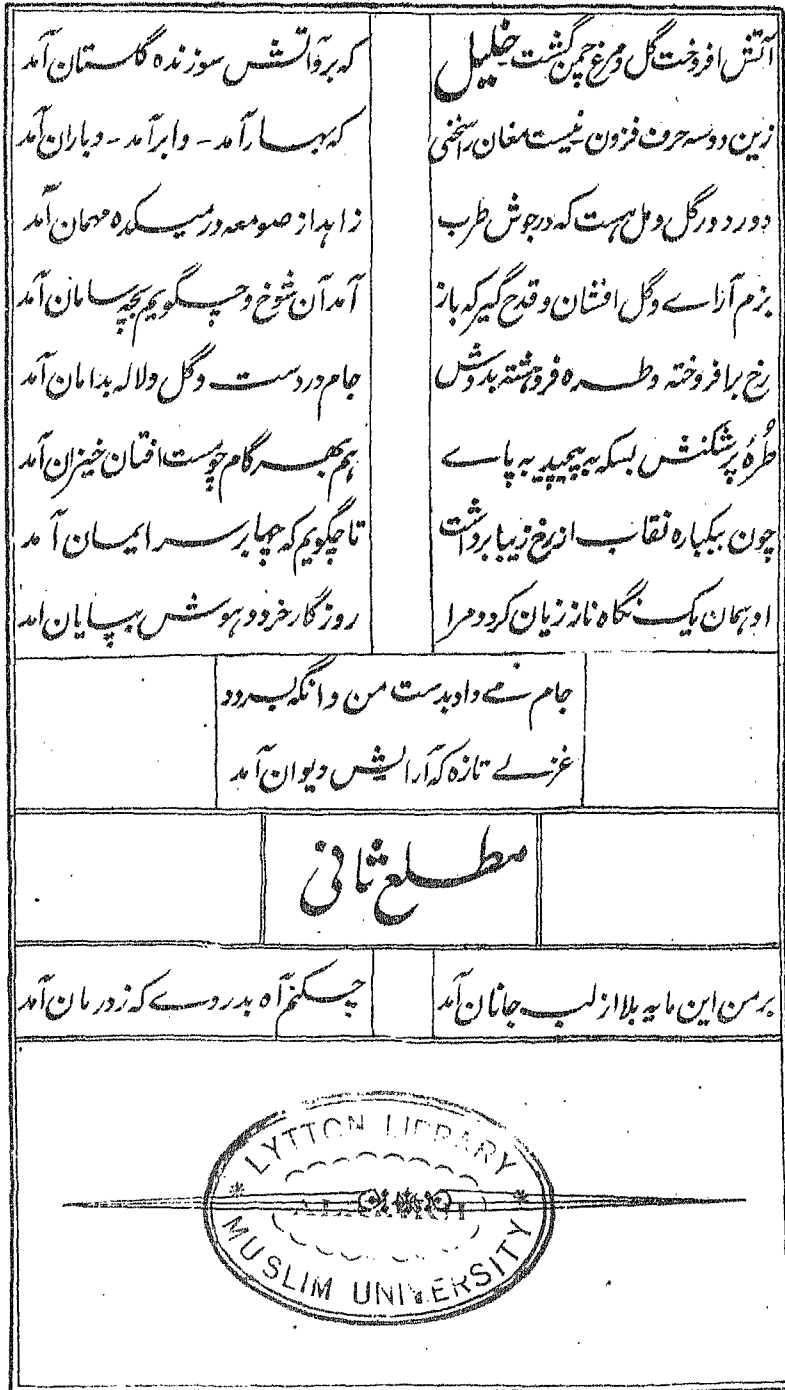 آتش افروخت گل و مرغ چمن گشت خلیل که برو آتش سوزنده گلستان آمد
زین دو سه حرف فزون نیست مغان را سخنی که بهار آمد - و ابر آمد - و باران آمد
دور دور گل و مل هست که در جوش طرب زاهد از صومعه در میکده مهمان آمد
بزم آراے و گل افشان و قدح گیر که باز آمد آن شوخ و چگویم بچه سامان آمد
رخ بر افروخته و طره فروهشته بدوش جام در دست و گل و لاله بدامان آمد
طُرهٔ پر شکنش بسکه به پیچید به پاے هم بهر گام چو مست افتان خیزان آمد
چون بیکباره نقاب از رخ زیبا برداشت تا چگویم که چها بر سر ایمان آمد
او همان یک نگاه ناز زیان کرد و مرا روزگار خرد و هوش بپایان آمد
جام مے داد بدست من و انگه بسرود
غزلے تازه که آرایش دیوان آمد
مطلع ثانی
بر من این مایه بلا از لب جانان آمد چکنم آه بدردے که ز درمان آمد
LYTTON LIBRARY
MUSLIM UNIVERSITY